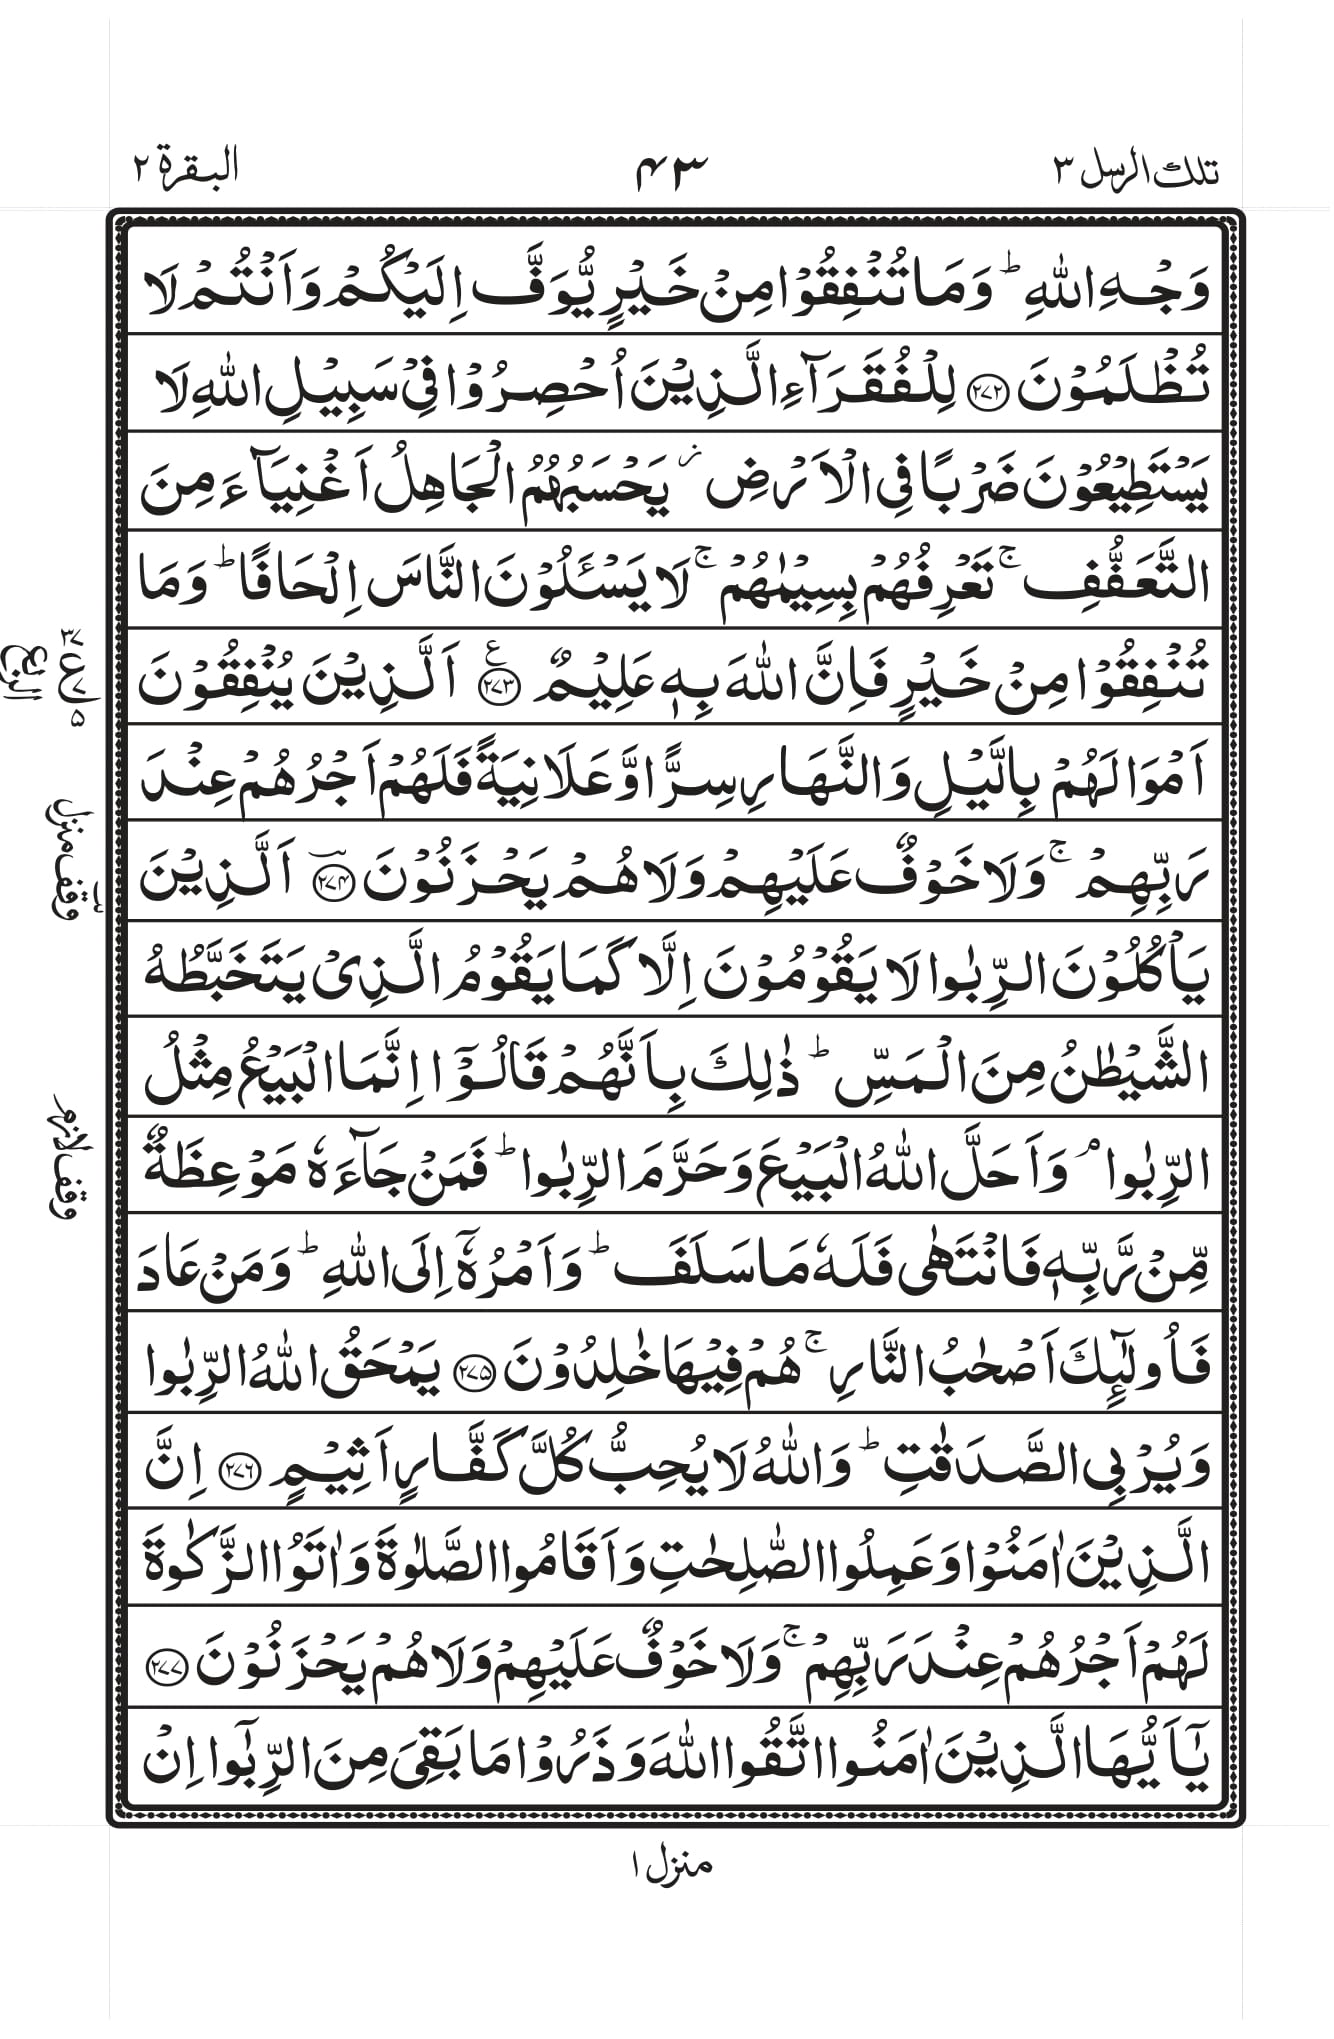 تلك الرسل ٣
۴۳
البقرة ٢
وَجْهِ اللّٰهِ ؕ وَمَا تُنْفِقُوْا مِنْ خَيْرٍ يُّوَفَّ اِلَيْكُمْ وَاَنْتُمْ لَا
تُظْلَمُوْنَ ﴿۲۷۲﴾ لِلْفُقَرَآءِ الَّذِيْنَ اُحْصِرُوْا فِيْ سَبِيْلِ اللّٰهِ لَا
يَسْتَطِيْعُوْنَ ضَرْبًا فِى الْاَرْضِ ؗ يَحْسَبُهُمُ الْجَاهِلُ اَغْنِيَآءَ مِنَ
التَّعَفُّفِ ۚ تَعْرِفُهُمْ بِسِيْمٰهُمْ ۚ لَا يَسْـَٔلُوْنَ النَّاسَ اِلْحَافًا ؕ وَمَا
تُنْفِقُوْا مِنْ خَيْرٍ فَاِنَّ اللّٰهَ بِهٖ عَلِيْمٌ ﴿۲۷۳﴾ ع اَلَّذِيْنَ يُنْفِقُوْنَ
اَمْوَالَهُمْ بِالَّيْلِ وَالنَّهَارِ سِرًّا وَّعَلَانِيَةً فَلَهُمْ اَجْرُهُمْ عِنْدَ
رَبِّهِمْ ۚ وَلَا خَوْفٌ عَلَيْهِمْ وَلَا هُمْ يَحْزَنُوْنَ ﴿۲۷۴﴾ اَلَّذِيْنَ
يَاْكُلُوْنَ الرِّبٰوا لَا يَقُوْمُوْنَ اِلَّا كَمَا يَقُوْمُ الَّذِيْ يَتَخَبَّطُهُ
الشَّيْطٰنُ مِنَ الْمَسِّ ؕ ذٰلِكَ بِاَنَّهُمْ قَالُوْۤا اِنَّمَا الْبَيْعُ مِثْلُ
الرِّبٰوا ۘ وَاَحَلَّ اللّٰهُ الْبَيْعَ وَحَرَّمَ الرِّبٰوا ؕ فَمَنْ جَآءَهٗ مَوْعِظَةٌ
مِّنْ رَّبِّهٖ فَانْتَهٰى فَلَهٗ مَا سَلَفَ ؕ وَاَمْرُهٗۤ اِلَى اللّٰهِ ؕ وَمَنْ عَادَ
فَاُولٰٓئِكَ اَصْحٰبُ النَّارِ ۚ هُمْ فِيْهَا خٰلِدُوْنَ ﴿۲۷۵﴾ يَمْحَقُ اللّٰهُ الرِّبٰوا
وَيُرْبِى الصَّدَقٰتِ ؕ وَاللّٰهُ لَا يُحِبُّ كُلَّ كَفَّارٍ اَثِيْمٍ ﴿۲۷۶﴾ اِنَّ
الَّذِيْنَ اٰمَنُوْا وَعَمِلُوا الصّٰلِحٰتِ وَاَقَامُوا الصَّلٰوةَ وَاٰتَوُا الزَّكٰوةَ
لَهُمْ اَجْرُهُمْ عِنْدَ رَبِّهِمْ ۚ وَلَا خَوْفٌ عَلَيْهِمْ وَلَا هُمْ يَحْزَنُوْنَ ﴿۲۷۷﴾
يٰۤاَيُّهَا الَّذِيْنَ اٰمَنُوا اتَّقُوا اللّٰهَ وَذَرُوْا مَا بَقِيَ مِنَ الرِّبٰۤوا اِنْ
۳۷
ع
۷
۵
الربع
وقف منزل
وقف لازم
منزل ١